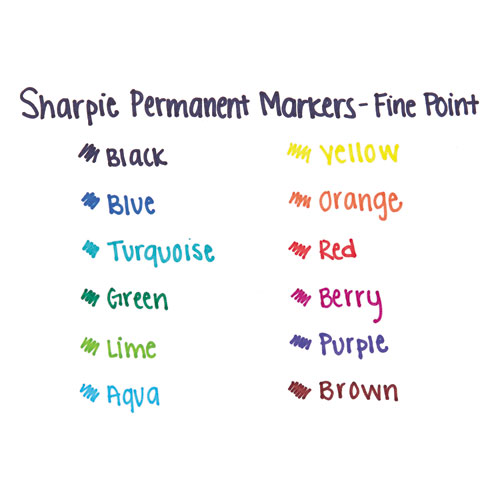 Sharpie Permanent Markers - Fine Point
Black
Blue
Turquoise
Green
Lime
Aqua
Yellow
Orange
Red
Berry
Purple
Brown